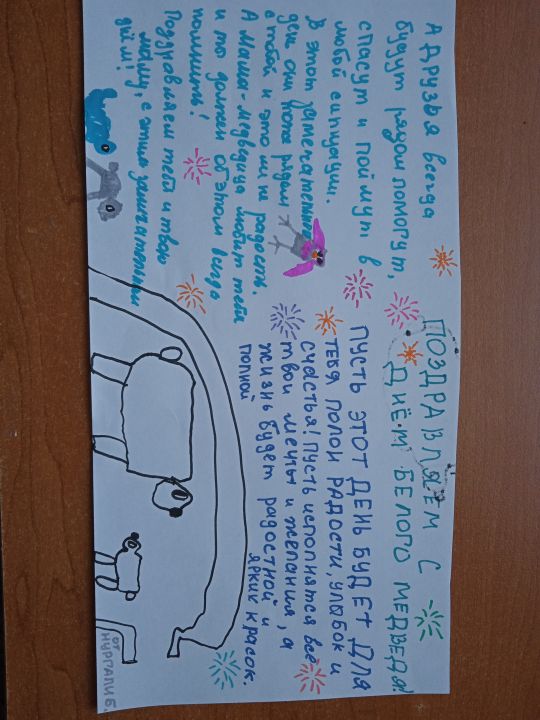 ПОЗДРАВЛЯЕМ С
ДНЁМ БЕЛОГО МЕДВЕДЯ!
ПУСТЬ ЭТОТ ДЕНЬ БУДЕТ ДЛЯ
ТЕБЯ ПОЛОН РАДОСТИ, УЛЫБОК И
СЧАСТЬЯ! ПУСТЬ ИСПОЛНЯТСЯ ВСЕ
ТВОИ МЕЧТЫ И ЖЕЛАНИЯ, А
ЖИЗНЬ БУДЕТ РАДОСТНОЙ И
ПОЛНОЙ ЯРКИХ КРАСОК.
А друзья всегда
будут рядом помогут,
спасут и поймут в
любой ситуации.
В этот замечательный
день они тоже рядом
с тобой и это ли не радость.
А Маша-медведица любит тебя
и ты должен об этом всегда
помнить!
Поздравляем тебя и твою
маму, с этим замечательным
днём!
ОТ
НУРГАЛИ Б.